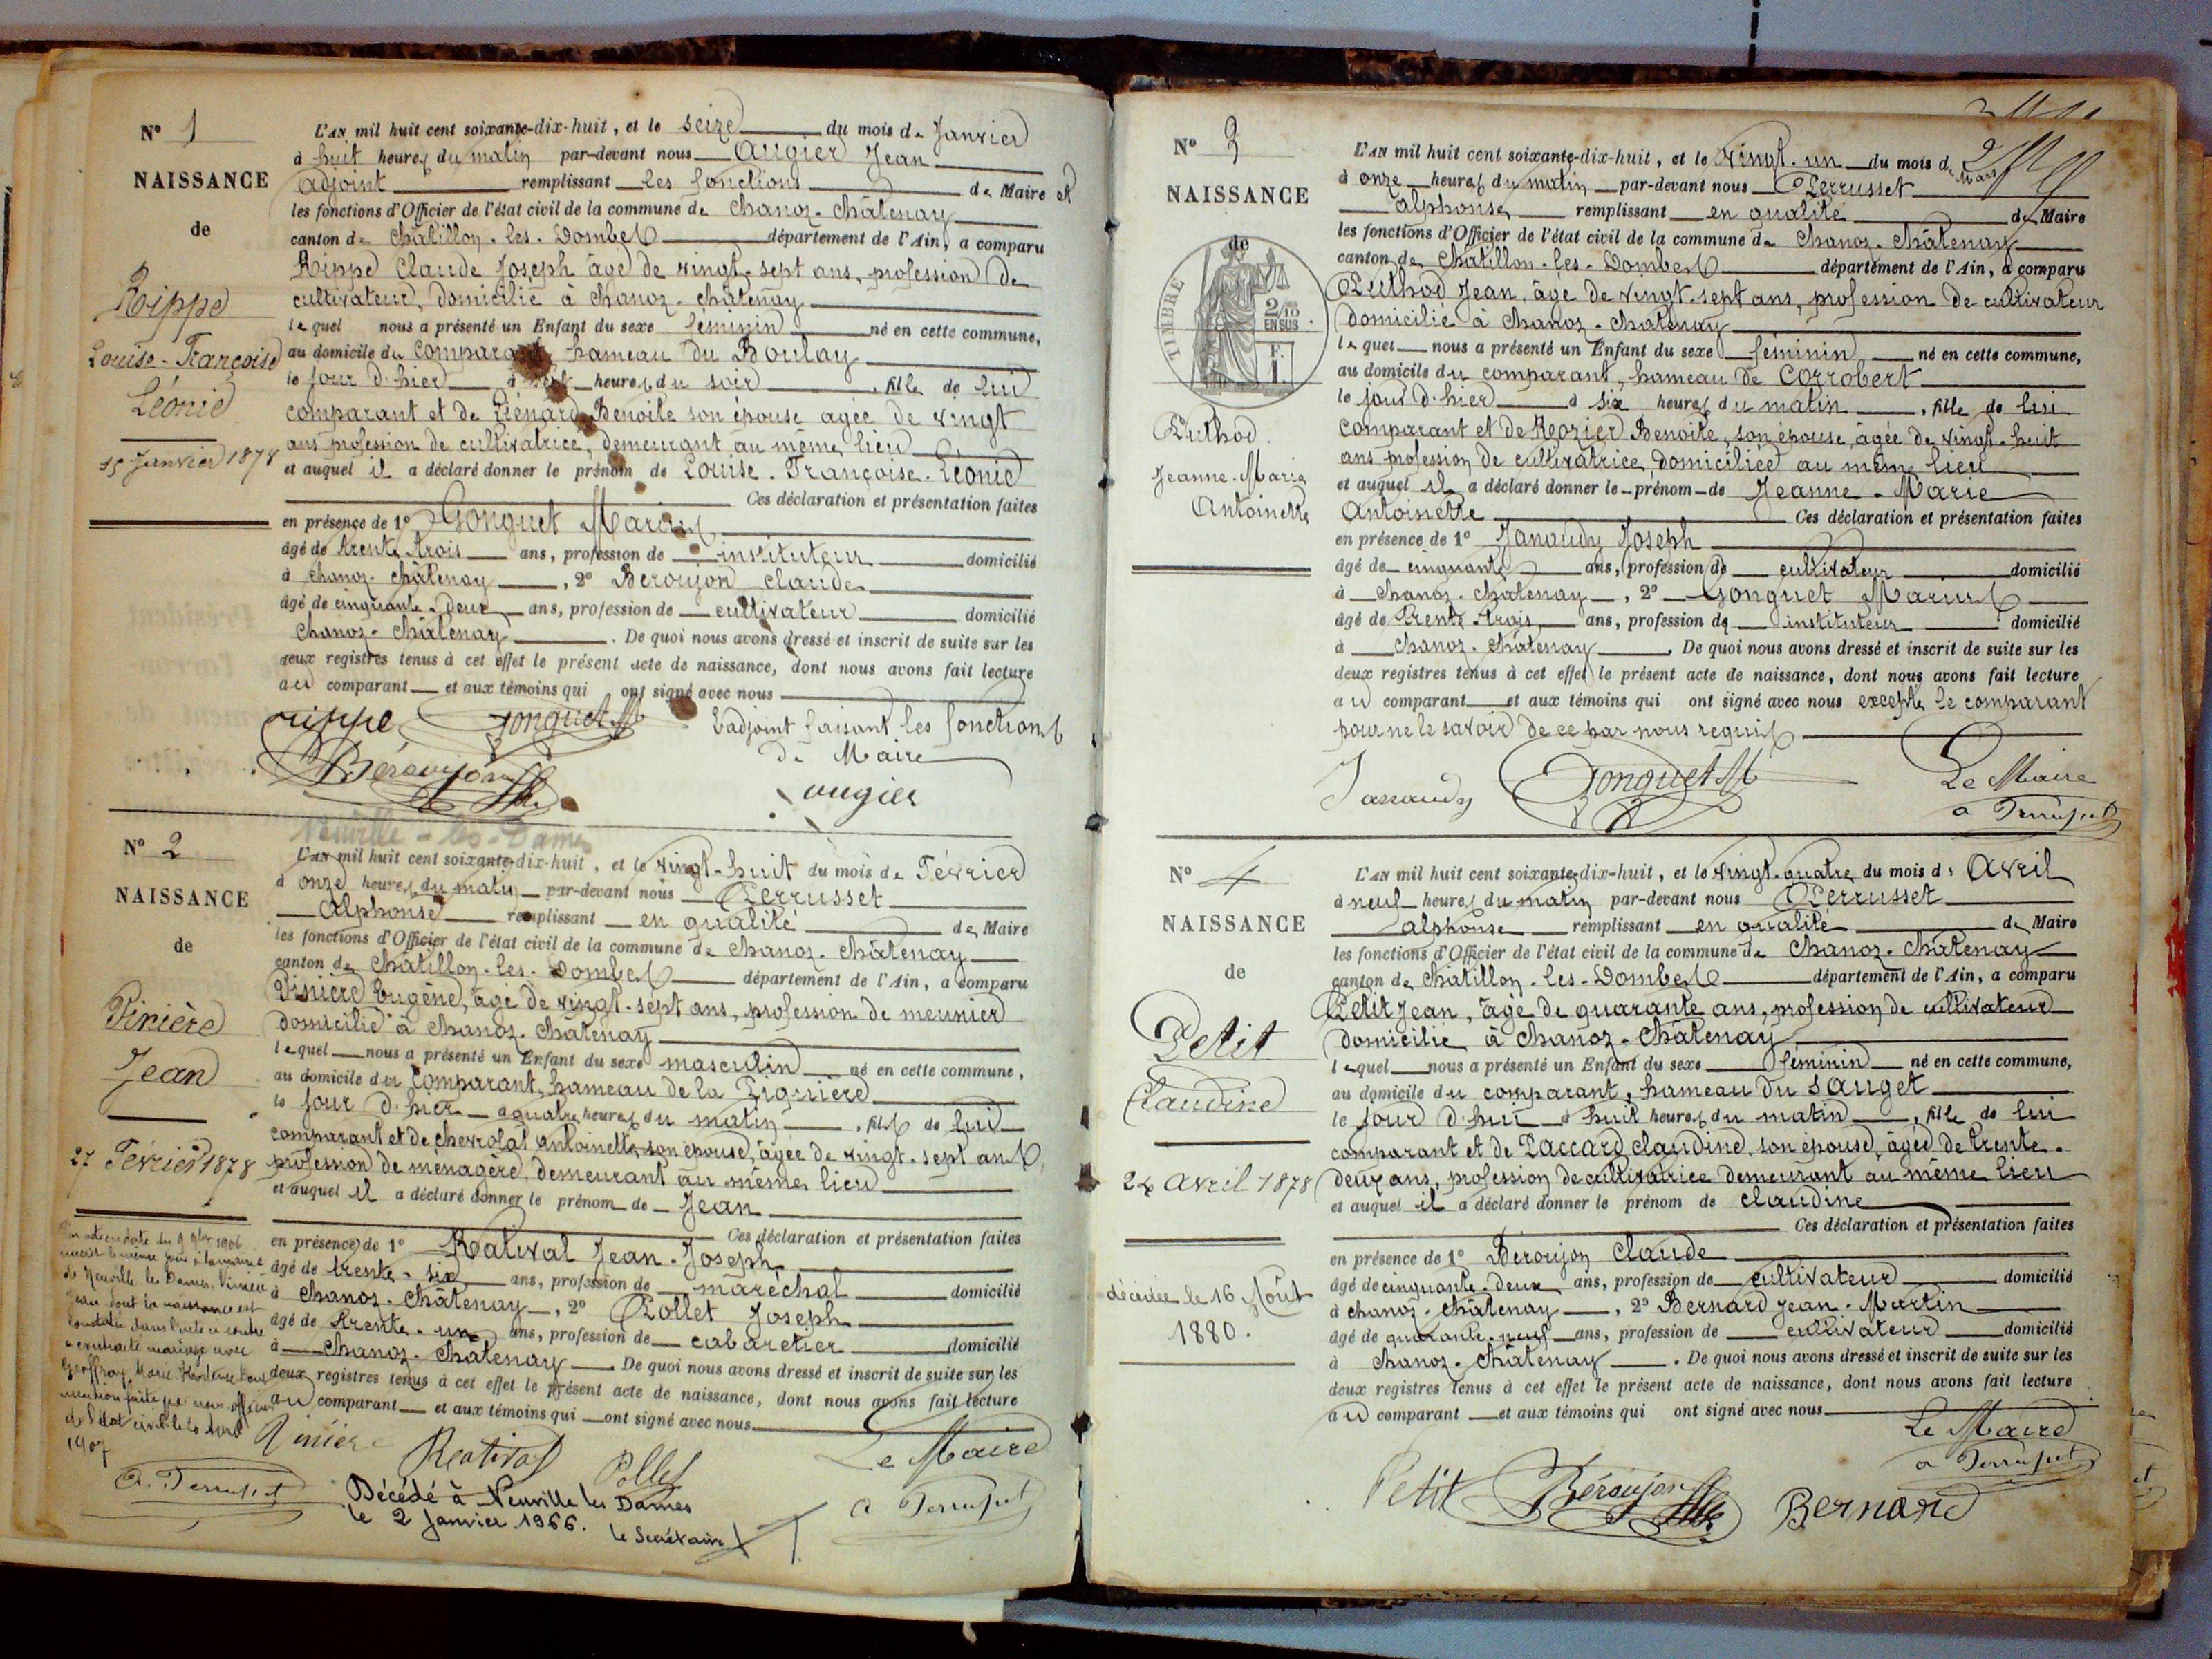 N° 1
NAISSANCE
de
Rippe
Louise-Françoise
Léonie
15 Janvier 1878
L'AN mil huit cent soixante-dix-huit, et le seize du mois de Janvier
à huit heures du matin par-devant nous Augier Jean
adjoint remplissant les fonctions de Maire et
les fonctions d'Officier de l'état civil de la commune de Chanoz-Châtenay
canton de Châtillon-les-Dombes département de l'Ain, a comparu
Rippe Claude Joseph âgé de vingt-sept ans, profession de
cultivateur, domicilié à Chanoz-Châtenay
lequel nous a présenté un Enfant du sexe féminin né en cette commune,
au domicile du comparant hameau du Boulay
le jour d'hier à sept heures du soir, fille de lui
comparant et de Piénard Benoite son épouse agée de vingt
ans profession de cultivatrice, demeurant au même lieu
et auquel il a déclaré donner le prénom de Louise-Françoise-Léonie
Ces déclaration et présentation faites
en présence de 1° Gonguet Marius
âgé de trente trois ans, profession de instituteur domicilié
à Chanoz-Châtenay, 2° Beroujon Claude
âgé de cinquante-deux ans, profession de cultivateur domicilié
Chanoz-Châtenay. De quoi nous avons dressé et inscrit de suite sur les
deux registres tenus à cet effet le présent acte de naissance, dont nous avons fait lecture
au comparant et aux témoins qui ont signé avec nous
rippe Gonguet M L'adjoint faisant les fonctions
de Maire
Béroujon
augier
N° 2
NAISSANCE
de
Vinière
Jean
27 Février 1878
Neuville-les-Dames
L'AN mil huit cent soixante-dix-huit, et le vingt-huit du mois de Février
à onze heures du matin par-devant nous Perrusset
Alphonse remplissant en qualité de Maire
les fonctions d'Officier de l'état civil de la commune de Chanoz-Châtenay
canton de Châtillon-les-Dombes département de l'Ain, a comparu
Vinière Eugène, âgé de vingt-sept ans, profession de meunier
domicilié à Chanoz-Châtenay
lequel nous a présenté un Enfant du sexe masculin né en cette commune,
au domicile du comparant, hameau de la Piguière
le jour d'hier à quatre heures du matin, fils de lui
comparant et de Chevrolat Antoinette, son épouse, âgée de vingt-sept ans,
profession de ménagère, demeurant au même lieu
et auquel il a déclaré donner le prénom de Jean
Ces déclaration et présentation faites
en présence de 1° Ratival Jean-Joseph
âgé de trente-six ans, profession de maréchal domicilié
à Chanoz-Châtenay, 2° Pollet Joseph
âgé de trente-un ans, profession de cabaretier domicilié
à Chanoz-Châtenay. De quoi nous avons dressé et inscrit de suite sur les
deux registres tenus à cet effet le présent acte de naissance, dont nous avons fait lecture
au comparant et aux témoins qui ont signé avec nous
Par acte en date du 9 9bre 1906
inscrit le même jour à la mairie
de Neuville les Dames Vinière
Jean dont la naissance est
constatée dans l'acte ci contre
a contracté mariage avec
Geoffray Marie
mention faite par nous officier
de l'état civil le
1907
A. Perrusset
Vinière Ratival Pollet Le Maire
A Perrusset
Décédé à Neuville les Dames
le 2 Janvier 1966. le Secrétaire
N° 3
NAISSANCE
de
TIMBRE
2/10
EN SUS
F.
1.
Puthod
Jeanne-Marie
Antoinette
L'AN mil huit cent soixante-dix-huit, et le vingt-un du mois de Mars
à onze heures du matin par-devant nous Perrusset
Alphonse remplissant en qualité de Maire
les fonctions d'Officier de l'état civil de la commune de Chanoz-Châtenay
canton de Châtillon-les-Dombes département de l'Ain, a comparu
Puthod Jean, âgé de vingt-sept ans, profession de cultivateur
domicilié à Chanoz-Chatenay
lequel nous a présenté un Enfant du sexe féminin né en cette commune,
au domicile du comparant, hameau de Corrobert
le jour d'hier à six heures du matin, fille de lui
comparant et de Rozier Benoite, son épouse, âgée de vingt-huit
ans profession de cultivatrice, domiciliée au même lieu
et auquel il a déclaré donner le prénom de Jeanne-Marie
Antoinette Ces déclaration et présentation faites
en présence de 1° Janaudy Joseph
âgé de cinquante ans, profession de cultivateur domicilié
à Chanoz-Chatenay, 2° Gonguet Marius
âgé de trente trois ans, profession de instituteur domicilié
à Chanoz-Châtenay. De quoi nous avons dressé et inscrit de suite sur les
deux registres tenus à cet effet le présent acte de naissance, dont nous avons fait lecture
au comparant et aux témoins qui ont signé avec nous excepté le comparant
pour ne le savoir de ce par nous requis
Janaudy Gonguet M Le Maire
A Perrusset
N° 4
NAISSANCE
de
Petit
Claudine
24 Avril 1878
décédée le 16 Août
1880.
L'AN mil huit cent soixante-dix-huit, et le vingt-quatre du mois d'Avril
à neuf heures du matin par-devant nous Perrusset
Alphonse remplissant en qualité de Maire
les fonctions d'Officier de l'état civil de la commune de Chanoz-Châtenay
canton de Châtillon-les-Dombes département de l'Ain, a comparu
Petit Jean, âgé de quarante ans, profession de cultivateur
domicilié à Chanoz-Châtenay
lequel nous a présenté un Enfant du sexe féminin né en cette commune,
au domicile du comparant, hameau du Sauget
le jour d'hui à huit heures du matin, fille de lui
comparant et de Paccard Claudine, son épouse, âgée de trente-
deux ans, profession de cultivatrice demeurant au même lieu
et auquel il a déclaré donner le prénom de Claudine
Ces déclaration et présentation faites
en présence de 1° Béroujon Claude
âgé de cinquante-deux ans, profession de cultivateur domicilié
à Chanoz-Châtenay, 2° Bernard Jean-Martin
âgé de quarante-neuf ans, profession de cultivateur domicilié
à Chanoz-Châtenay. De quoi nous avons dressé et inscrit de suite sur les
deux registres tenus à cet effet le présent acte de naissance, dont nous avons fait lecture
au comparant et aux témoins qui ont signé avec nous
Le Maire
A Perrusset
Petit Béroujon Bernard